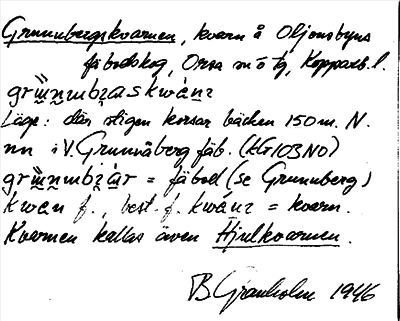 Grunubergskvarnen, kvarn å Oljonsbyns
fäbodskog, Orsa sn ö tg, Kopparb.l.
grünumbzaskwánɪ
Läge: där stigen korsar bäcken 150 m. N.
nn i V. Grunuåberg fäb. (HT103NO)
= fäbod (se Grunuberg)
kwan f., best. f. kwánɪ = kvarn.
Kvarnen kallas även Hjulkvarnen.
B Granholm 1946